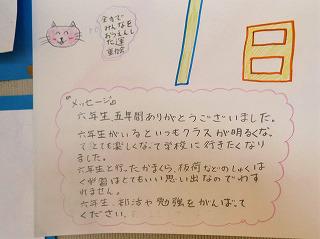 全力で
みんなを
おうえんし
た運
動会
1日
『メッセージ』
六年生、五年間ありがとうございました。
六年生がいるといつもクラスが明るくな
って とても楽しくなって学校に行きたくなり
ました。
六年生と行ったかまくら、板荷などのしゅくは
く学習はとてもいい思い出なのでわす
れません。
六年生、部活や勉強をがんばって
ください。